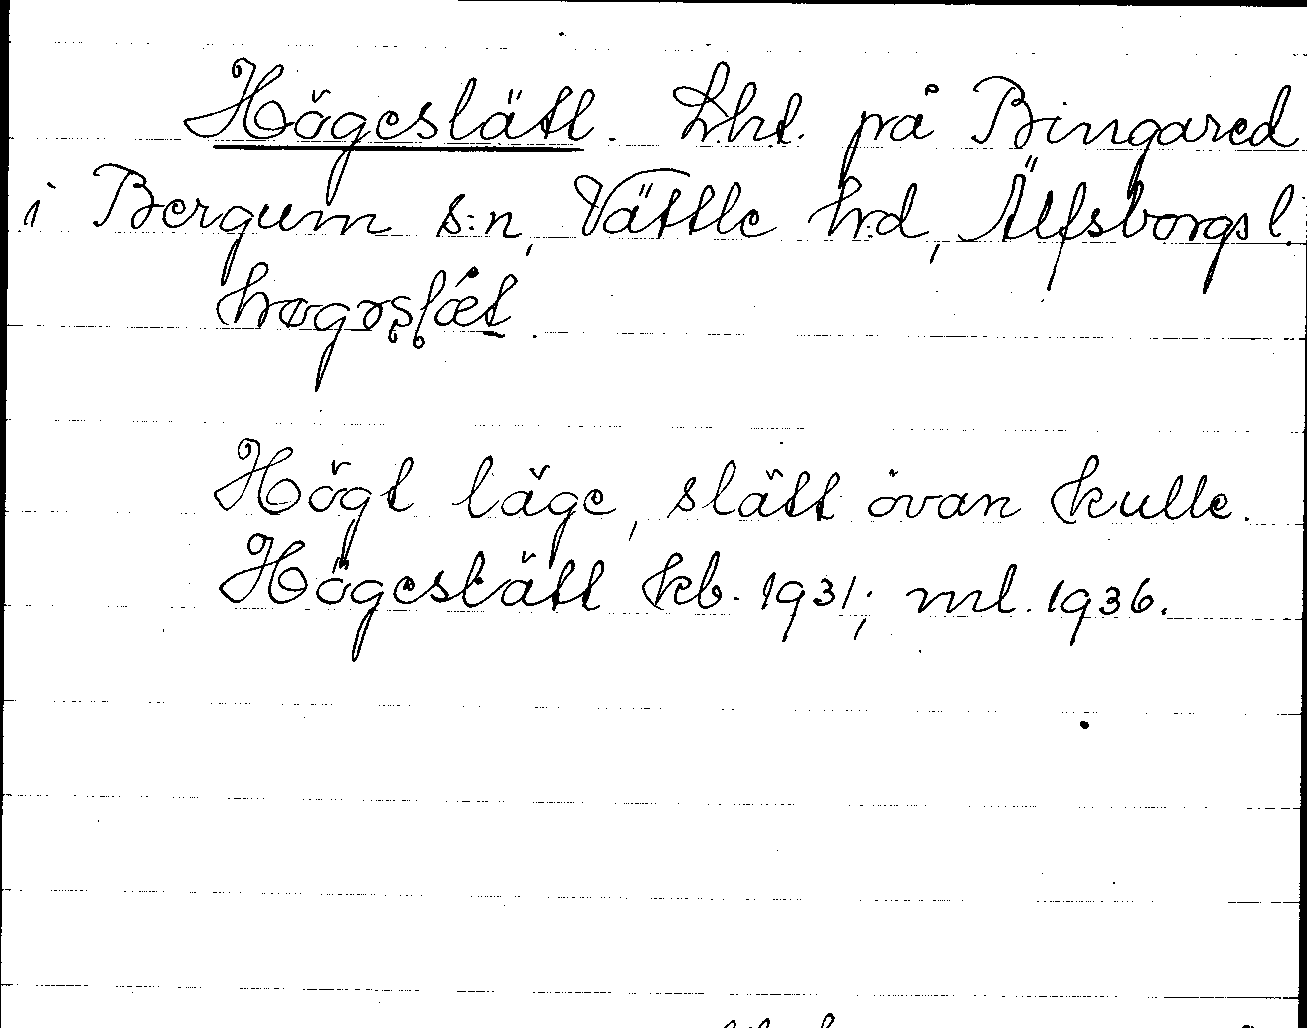 Högeslätt. Lht. på Bingared
i Bergum s:n, Vättle hd, Älfsborgs l.
Högt läge, slätt ovan kulle.
Högeslätt kb. 1931; ml. 1936.